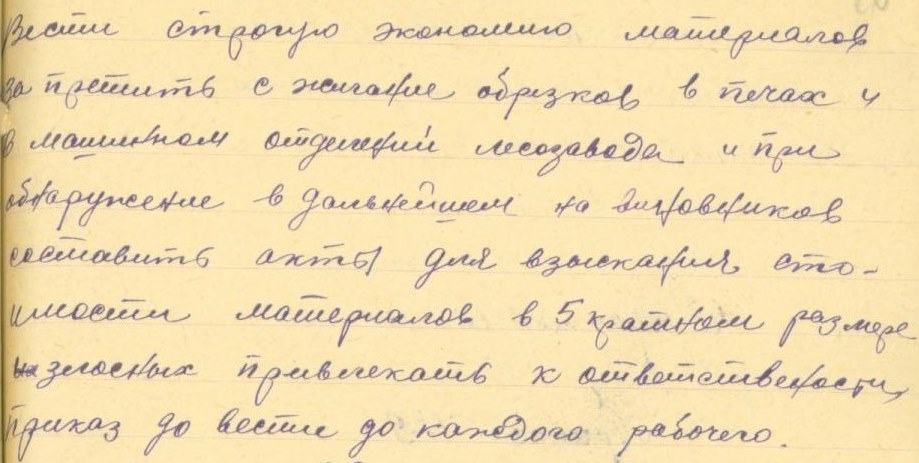 Вести строгую экономию материалов
за претить с жигание обрезков в печах и
в машинном отделений лесозавода и при
обнаружение в дальнейшем на виновников
составить акты для взыскания сто-
имости материалов в 5 кратном размере
злосных привлекать к ответствености,
приказ до вести до каждого рабочего.